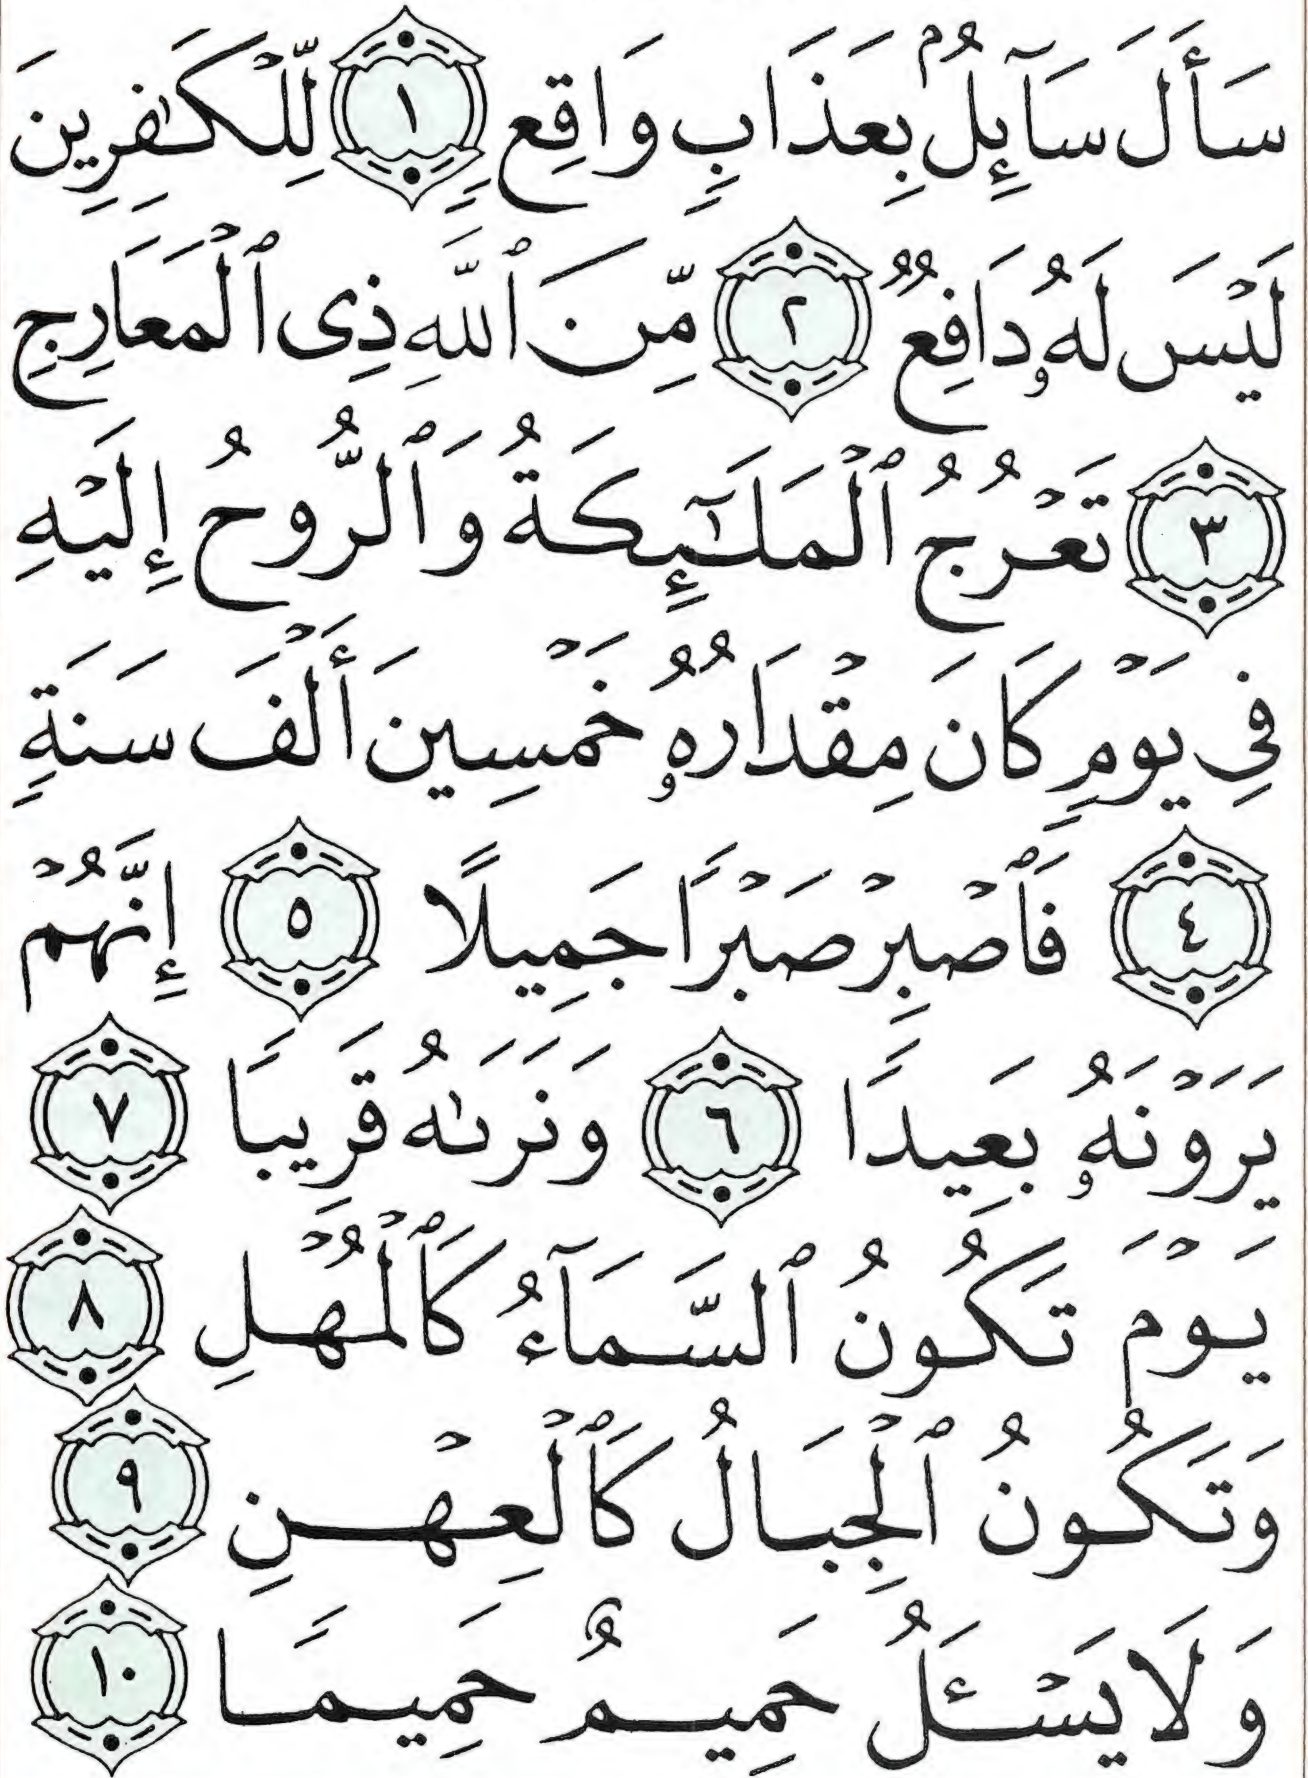 سَأَلَ سَآئِلُۢ بِعَذَابٍ وَاقِعٍ ١ لِّلْكَٰفِرِينَ
لَيْسَ لَهُۥ دَافِعٌ ٢ مِّنَ ٱللَّهِ ذِى ٱلْمَعَارِجِ
٣ تَعْرُجُ ٱلْمَلَٰٓئِكَةُ وَٱلرُّوحُ إِلَيْهِ
فِى يَوْمٍ كَانَ مِقْدَارُهُۥ خَمْسِينَ أَلْفَ سَنَةٍ
٤ فَٱصْبِرْ صَبْرًا جَمِيلًا ٥ إِنَّهُمْ
يَرَوْنَهُۥ بَعِيدًا ٦ وَنَرَىٰهُ قَرِيبًا ٧
يَوْمَ تَكُونُ ٱلسَّمَآءُ كَٱلْمُهْلِ ٨
وَتَكُونُ ٱلْجِبَالُ كَٱلْعِهْنِ ٩
وَلَا يَسْـَٔلُ حَمِيمٌ حَمِيمًا ١٠